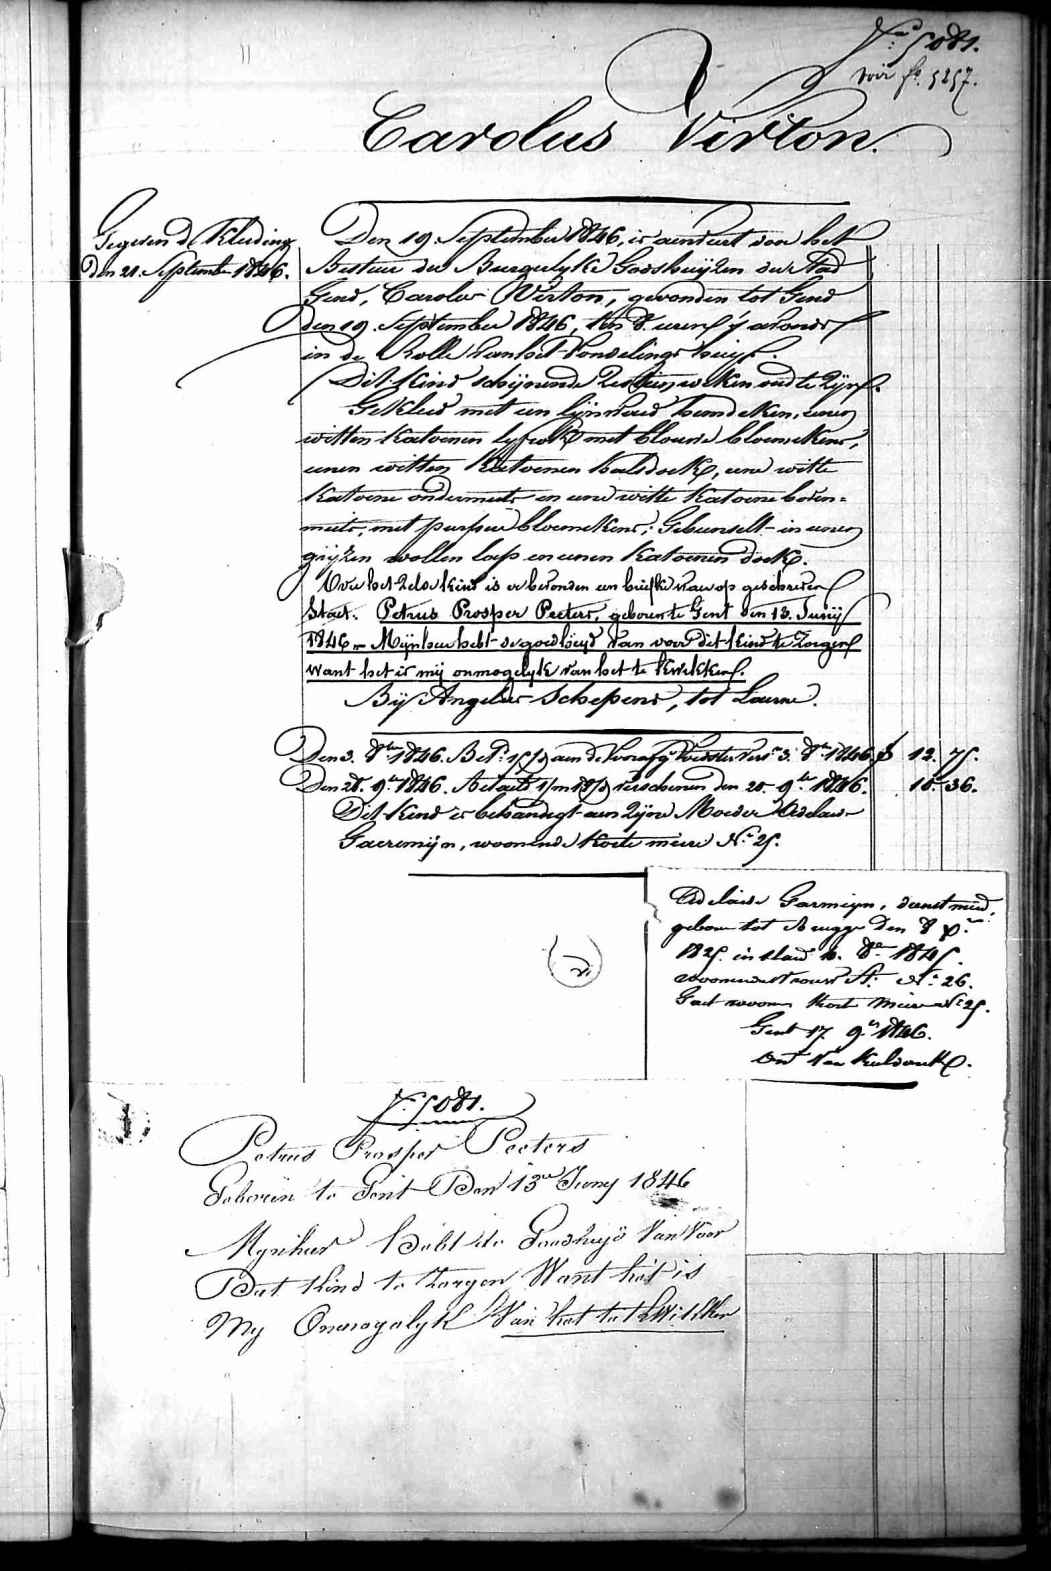 Nº 5081.
voir fº. 5257.
Carolus Virton.
Gegeven de Kleeding
Den 21. September 1846.
Den 19. September 1846, is aenveert door het
Bestuer der Burgerlyke Godshuyzen der Stad
Gend, Carolus Virton, gevonden tot Gend
den 19. September 1846, ten 8. uren 's avonds
in de Rolle van het Vondelings huys.
Dit kind schijnende weken oud te zijn.
Gekleed met een lijnwaed hemdeken, eenen
witten katoenen lyfrok met blouwe bloemekens,
eenen witten katoenen halsdoek, eene witte
katoene ondermuts en eene witte katoene boven-
muts, met purpere bloemekens; Gebunselt in eenen
grijzen wollen lap en eenen katoenen doek.
Over het zelve kind is er bevonden een briefke waer op geschreven
staet. Petrus Prosper Peeters, geboren te Gent den 13. Junij
1846 — Mijnheer hebt de goedheyd van voor dit kind te zorgen
want het is mij onmogelyk van het te kwekken.
Bij Angelus Schepens, tot Laerne.
Den 3. 8ber 1846. Bet. aen de Voedster vers. 3. 8ber 1846. 12. 75.
Den 28. 9ber 1846. Betaelt verschenen den 20. 9ber 1846. 18. 36.
Dit kind is behandigt aen zijne Moeder Adelaïs
Gaeremijn, woonende Korte meire Nº 25.
Adelaide Garmeijn, dienstmeid,
geboren tot Brugge Den 8 Xber
1825. in stad 10. 8ber 1845.
woonende St. Nº 26.
Gaet woonen Korte Meire Nº 25.
Gent 17 9ber 1846.
Nº 5081.
Petrus Prosper Peeters
Geboren te Gent Den 13en Juny 1846
Mynheer Hebt de Goedheyd Van Voor
Dat Kind te Zorgen Want het is
My Onmogelyk Van het te kwikken